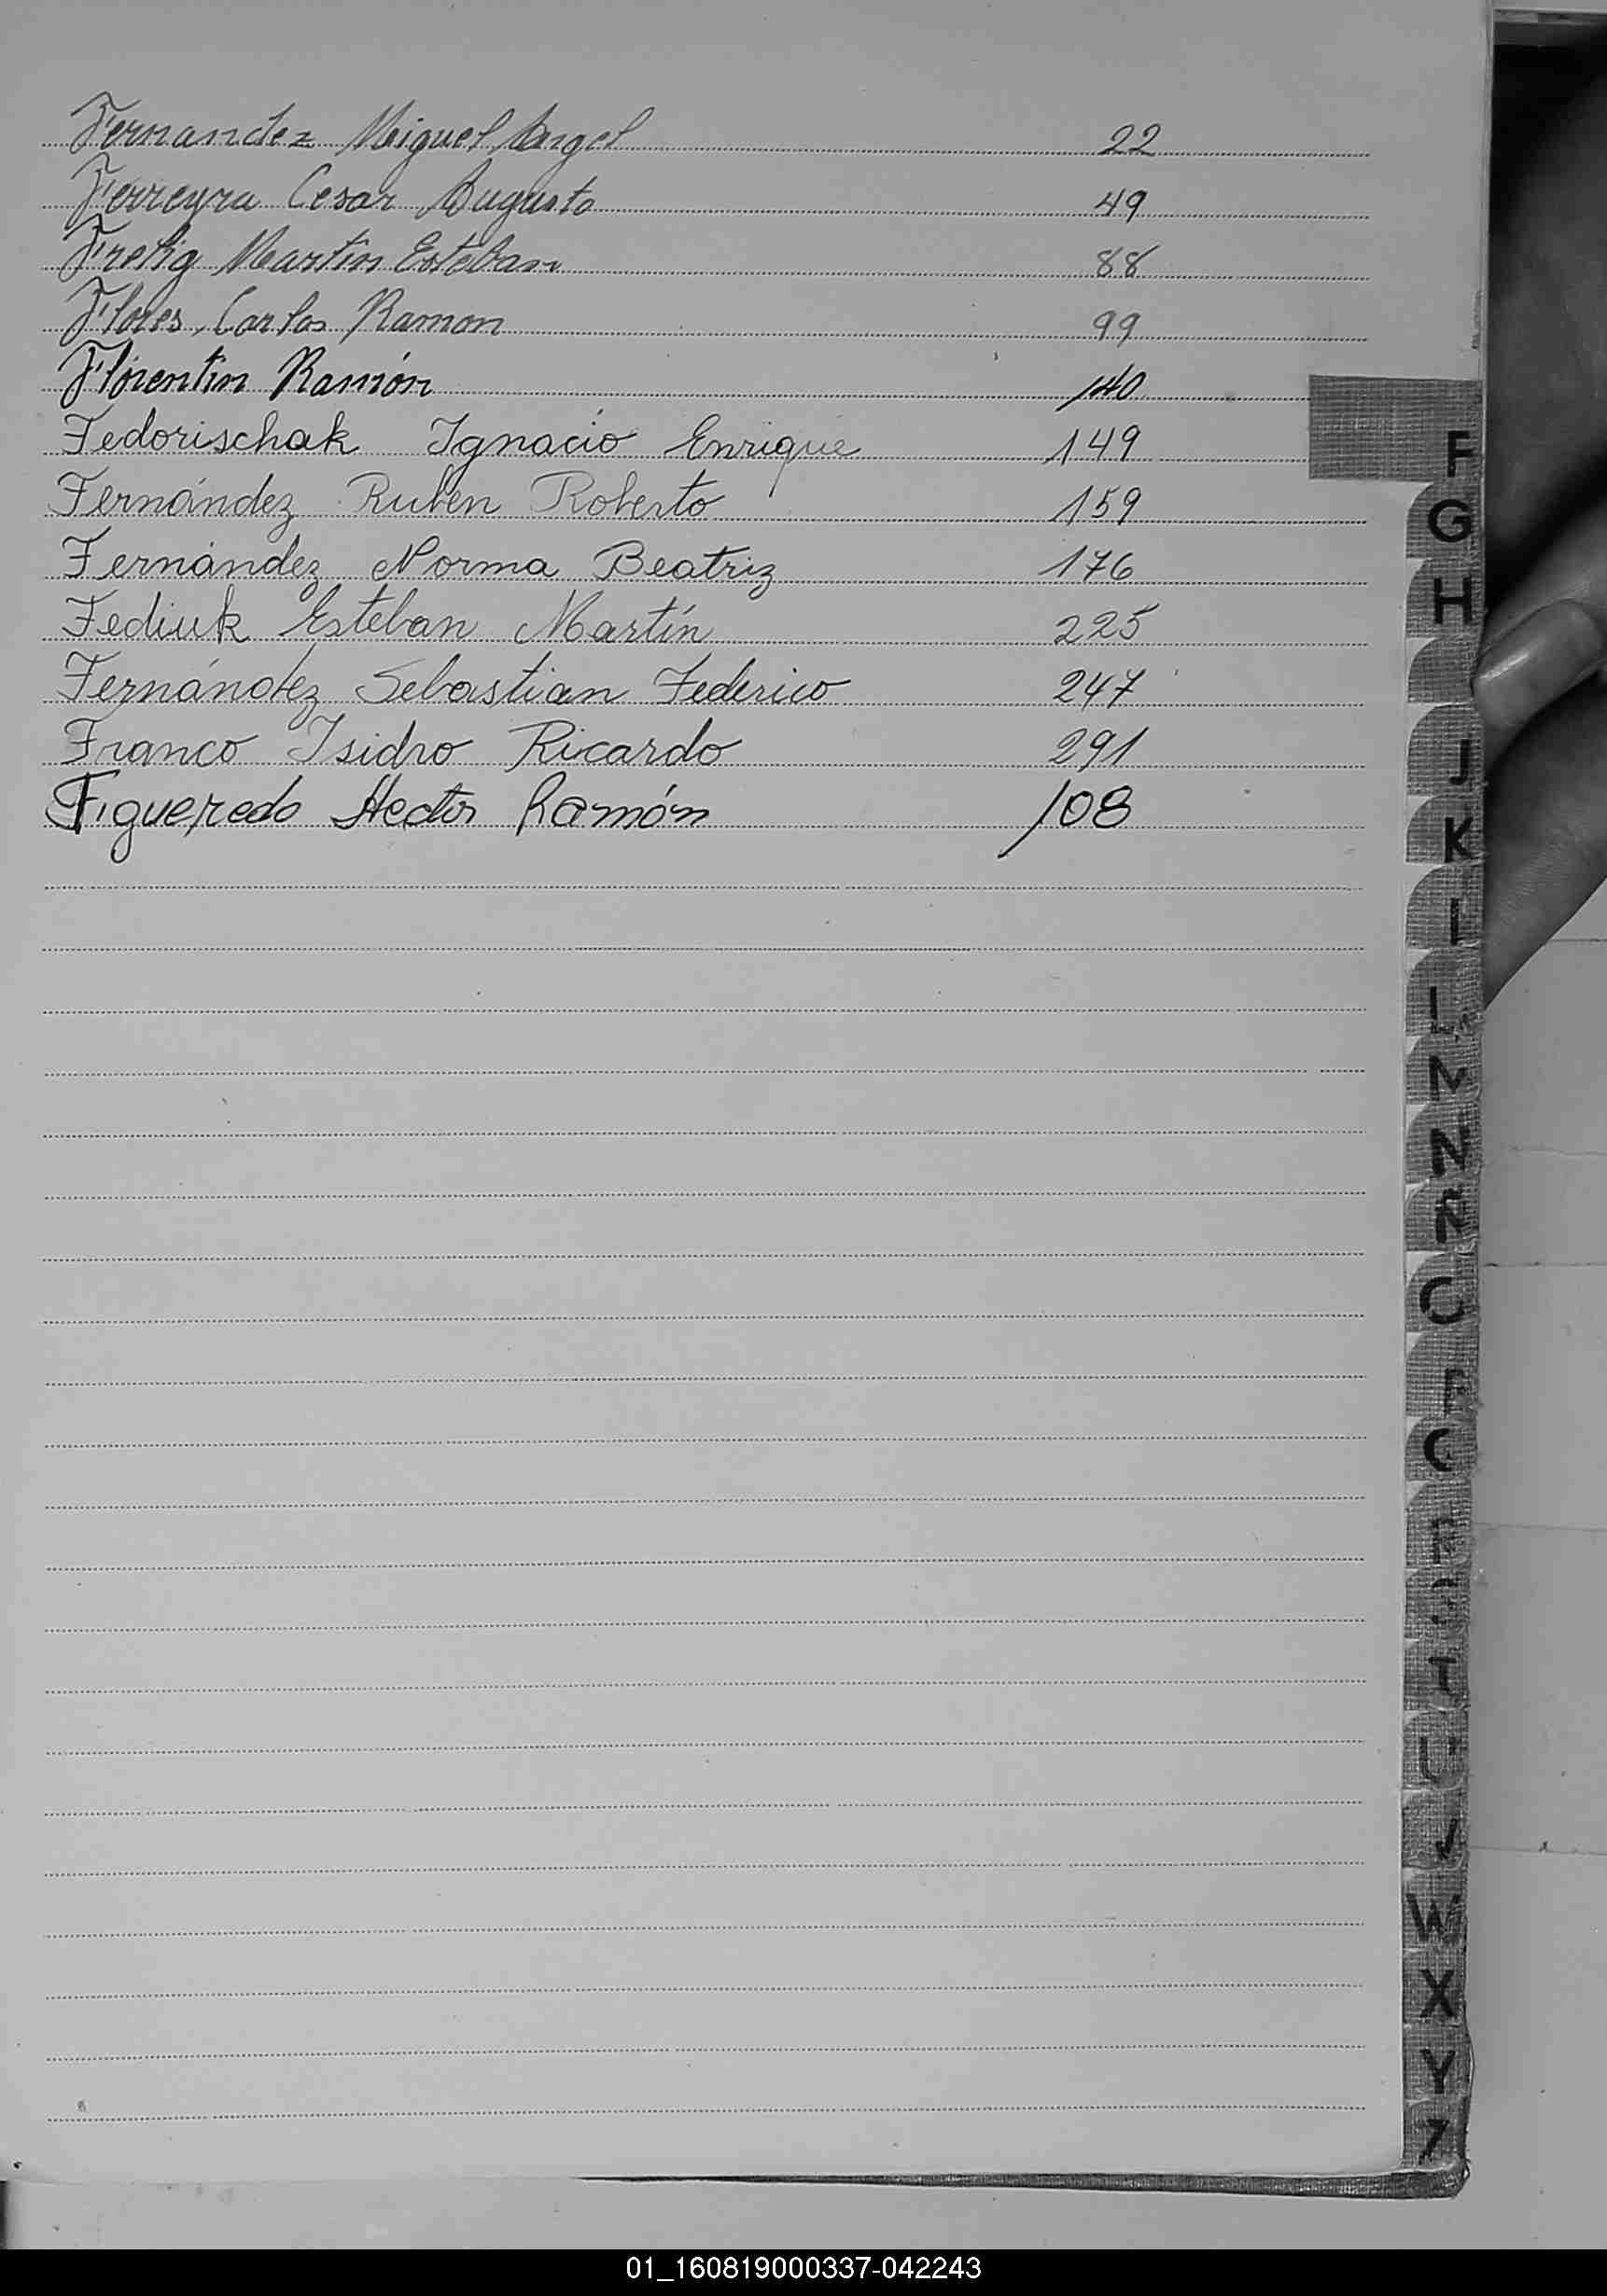 Fernandez Miguel Angel 22
Ferreyra Cesar Augusto 49
Frelig Martin Esteban 88
Flores, Carlos Ramon 99
Florentin Ramón 140
Fedorischak Ignacio Enrique 149
Fernández Ruben Roberto 159
Fernández Norma Beatriz 176
Fediuk Esteban Martín 225
Fernández Sebastian Federico 247
Franco Isidro Ricardo 291
Figueredo Hector Ramón 108
F
G
H
J
K
L
N
N
C
U
W
X
Y
Z
01_160819000337-042243